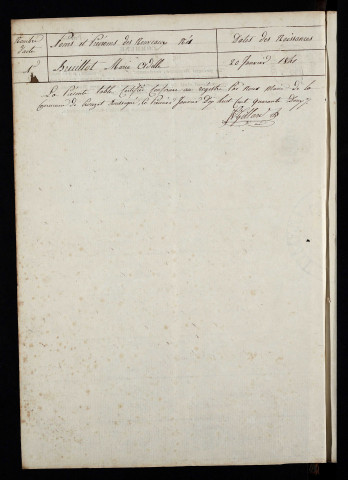 Nombre d'acte Noms et Prénoms des Nouveaux Nés Dates des Naissances
1er Bruillot Marie Odille 20 Janvier 1841
La Présente table Certifiée Conforme au registre Par Nous Maire de la
Commune de le Premier Janvier Dix huit Cent Quarante Deux